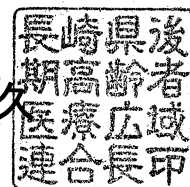 長崎県後
期高齢者
久
医療広域
連合長印